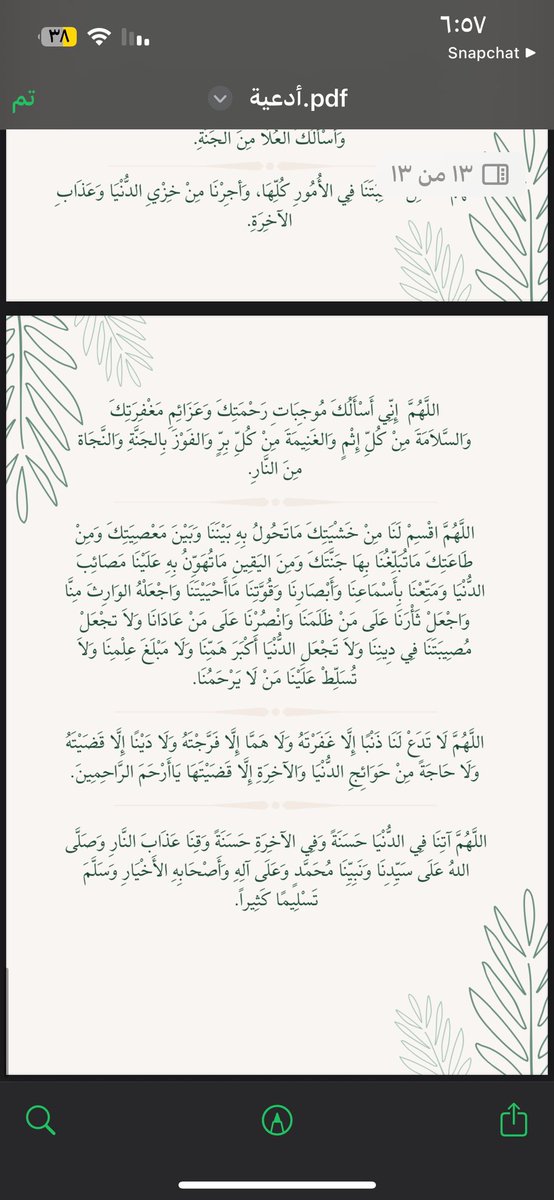 ٦:٥٧
٣٨
Snapchat
أدعية.pdf
تم
وَأَسْأَلُكَ العُلَا مِنَ الجَنَّةِ.
١٣ من ١٣
فِي الأُمُورِ كُلِّهَا، وَأَجِرْنَا مِنْ خِزْيِ الدُّنْيَا وَعَذَابِ
الآخِرَةِ.
اللَّهُمَّ إِنِّي أَسْأَلُكَ مُوجِبَاتِ رَحْمَتِكَ وَعَزَائِمِ مَغْفِرَتِكَ
وَالسَّلَامَةَ مِنْ كُلِّ إِثْمٍ وَالغَنِيمَةَ مِنْ كُلِّ بِرٍّ وَالفَوْزَ بِالجَنَّةِ وَالنَّجَاةَ
مِنَ النَّارِ.
اللَّهُمَّ اقْسِمْ لَنَا مِنْ خَشْيَتِكَ مَاتَحُولُ بِهِ بَيْنَنَا وَبَيْنَ مَعْصِيَتِكَ وَمِنْ
طَاعَتِكَ مَاتُبَلِّغُنَا بِهَا جَنَّتَكَ وَمِنَ اليَقِينِ مَاتُهَوِّنُ بِهِ عَلَيْنَا مَصَائِبَ
الدُّنْيَا وَمَتِّعْنَا بِأَسْمَاعِنَا وَأَبْصَارِنَا وَقُوَّتِنَا مَاأَحْيَيْتَنَا وَاجْعَلْهُ الوَارِثَ مِنَّا
وَاجْعَلْ ثَأْرَنَا عَلَى مَنْ ظَلَمَنَا وَانْصُرْنَا عَلَى مَنْ عَادَانَا وَلَا تَجْعَلْ
مُصِيبَتَنَا فِي دِينِنَا وَلَا تَجْعَلِ الدُّنْيَا أَكْبَرَ هَمِّنَا وَلَا مَبْلَغَ عِلْمِنَا وَلَا
تُسَلِّطْ عَلَيْنَا مَنْ لَا يَرْحَمُنَا.
اللَّهُمَّ لَا تَدَعْ لَنَا ذَنْبًا إِلَّا غَفَرْتَهُ وَلَا هَمًّا إِلَّا فَرَّجْتَهُ وَلَا دَيْنًا إِلَّا قَضَيْتَهُ
وَلَا حَاجَةً مِنْ حَوَائِجِ الدُّنْيَا وَالآخِرَةِ إِلَّا قَضَيْتَهَا يَاأَرْحَمَ الرَّاحِمِينَ.
اللَّهُمَّ آتِنَا فِي الدُّنْيَا حَسَنَةً وَفِي الآخِرَةِ حَسَنَةً وَقِنَا عَذَابَ النَّارِ وَصَلَّى
اللهُ عَلَى سَيِّدِنَا وَنَبِيِّنَا مُحَمَّدٍ وَعَلَى آلِهِ وَأَصْحَابِهِ الأَخْيَارِ وَسَلَّمَ
تَسْلِيمًا كَثِيراً.